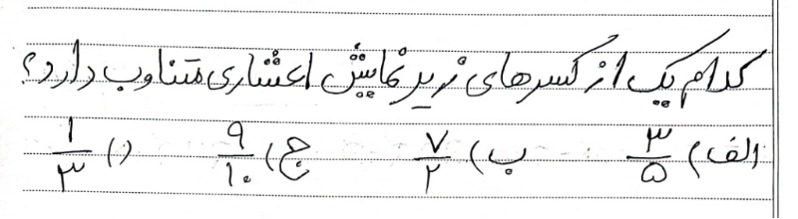 کدام یک از کسرهای زیر نمایش اعشاری متناوب دارد؟
الف) ۳/۵ ب) ۷/۲ ج) ۹/۱۰ د) ۱/۳